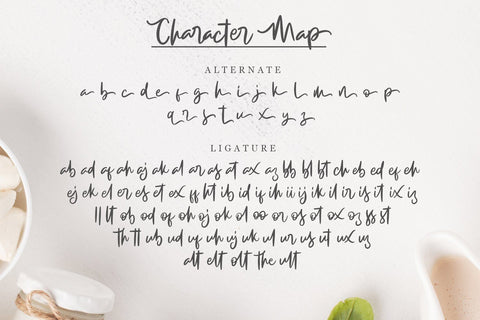 Character Map
ALTERNATE
a b c d e f g h i j k l m n o p
q r s t u v x y z
LIGATURE
ab ad af ah aj ak al ar as at ax az bb bl bt ch eb ed ef eh
ej ek el er es et ex ff ht ib id if ih ii ij ik il ir is it ix iz
ll lt ob od of oh oj ok ol oo or os ot ox oz ss st
th tt ub ud uf uh uj uk ul ur us ut ux uz
alt elt olt the ult